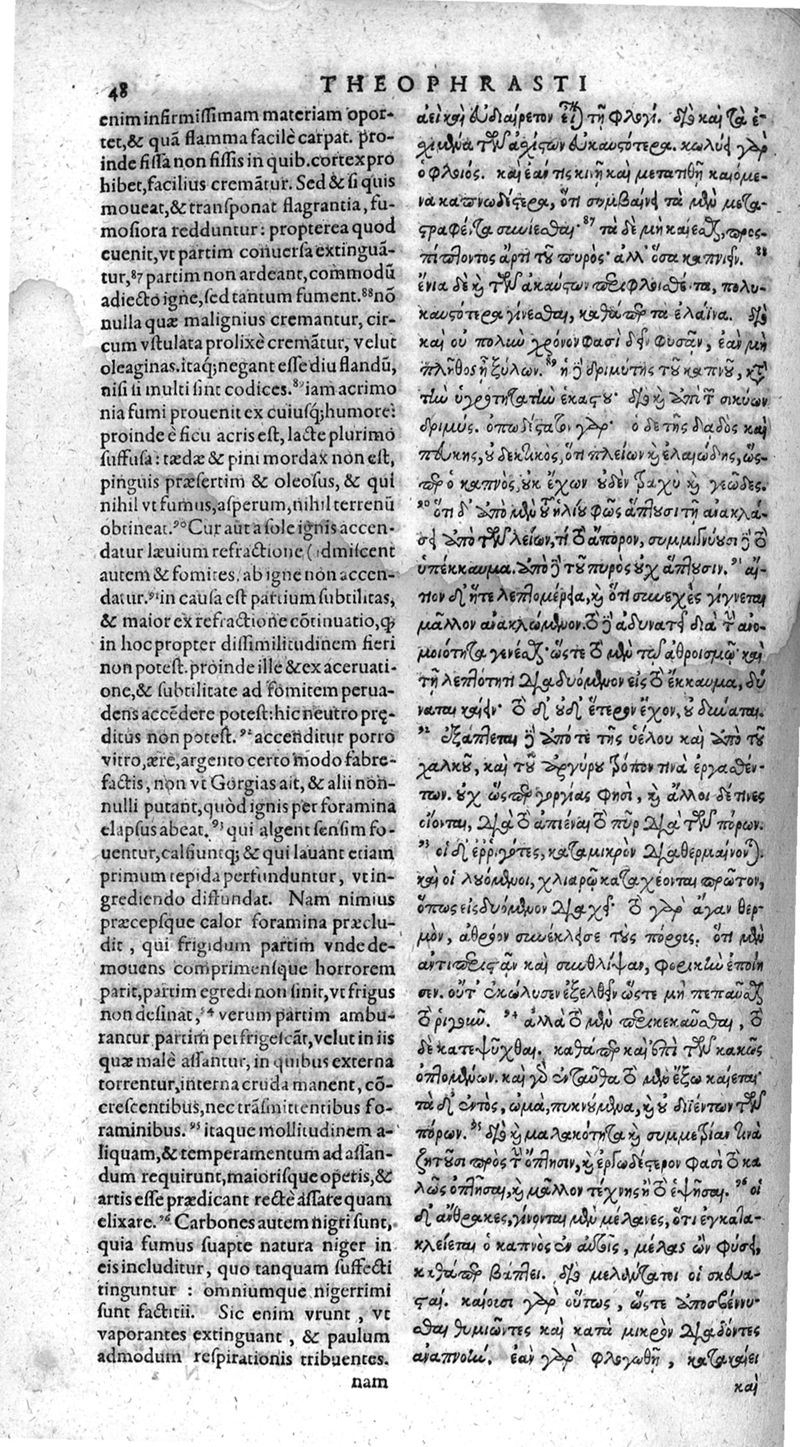 48
THEOPHRASTI
enim infirmissimam materiam opor-
tet,& quā flamma facilè carpat. pro-
inde fissa non fissis in quib.cortex pro
hibet,facilius cremātur. Sed & si quis
moueat,& transponat flagrantia, fu-
mosiora redduntur: propterea quod
euenit,vt partim conuersa extinguā-
tur,87 partim non ardeant,commodū
adiecto igne,sed tantum fument.88 nō
nulla quæ malignius cremantur, cir-
cum vstulata prolixè cremātur, velut
oleaginas.itaq; negant esse diu flandū,
nisi si multi sint codices.89 iam acrimo
nia fumi prouenit ex cuiusq; humore:
proinde è ficu acris est, lacte plurimo
suffusa: tædæ & pini mordax non est,
pinguis præsertim & oleosus, & qui
nihil vt fumus,asperum,nihil terrenū
obtineat.90 Cur aūt a sole ignis accen-
datur læuium refractione (admiscent
autem & fomites, ab igne non accen-
datur.91 in causa est partium subtilitas,
& maior ex refractione cōtinuatio, q
in hoc propter dissimilitudinem fieri
non potest. proinde ille & ex aceruati-
one,& subtilitate ad fomitem perua-
dens accēdere potest: hic neutro prę-
ditus non potest. 92 accenditur porro
vitro,ære,argento certo modo fabre-
factis, non vt Gorgias ait, & alii non-
nulli putant,quòd ignis per foramina
elapsus abeat. 93 qui algent sensim fo-
uentur,calfiuntq; & qui lauant etiam
primum tepida perfunduntur, vt in-
grediendo diffundat. Nam nimius
præcepsque calor foramina præclu-
dit, qui frigidum partim vnde de-
mouens comprimensque horrorem
parit,partim egredi non sinit,vt frigus
non desinat, 94 verum partim ambu-
rantur partim perfrigescāt,velut in iis
quæ malè assantur, in quibus externa
torrentur,interna cruda manent, cō-
crescentibus,nec trāsmittentibus fo-
raminibus. 95 itaque mollitudinem a-
liquam,& temperamentum ad assan-
dum requirunt,maiorisque operis,&
artis esse prædicant rectè assare quam
elixare. 96 Carbones autem nigri sunt,
quia fumus suapte natura niger in
eis includitur, quo tanquam suffecti
tinguntur : omniumque nigerrimi
sunt factitii. Sic enim vrunt, vt
vaporantes extinguant, & paulum
admodum respirationis tribuentes.
nam
ἀεὶ καὶ εὐδιαίρετον εἶναι τῇ φλογί. διὸ καὶ τὰ ἐ-
ὁ φλοιός. καὶ ἐάν τις κινῇ καὶ μετατιθῇ καιόμε-
να καπνωδέστερα, ὅτι συμβαίνει τὰ μὲν μετα-
πίπτοντος ἄρτι τοῦ πυρός· ἀλλ' ὅσα καπνίζειν. 88
ἔνια δὲ καὶ τῶν ἀκαύστων περιφλοισθέντα, πολυ-
καυστότερα γίνεσθαι, καθάπερ τὰ ἐλάϊνα. διὸ
καὶ οὐ πολὺν χρόνον φασὶ δεῖν φυσᾷν, ἐὰν μὴ
πλῆθος ᾖ ξύλων. 89 ἡ δὲ δριμύτης τοῦ καπνοῦ, κατὰ
τὴν ὑγρότητα τὴν ἑκάστου· διὸ καὶ ἀπὸ τῶν σικύων
δριμύς. ὀπωδέστατον γάρ· ὁ δὲ τῆς δαδὸς καὶ
πεύκης, οὐ δεκτικὸς, ὅτι πλείων καὶ ἐλαιώδης, ὥς-
περ ὁ καπνὸς, οὐκ ἔχων οὐδὲν τραχὺ καὶ γεῶδες.
90 ὅτι δ' ἀπὸ μὲν τοῦ ἡλίου φῶς ἅπτουσι τῇ ἀνακλά-
σει ἀπὸ τῶν λείων, τί τὸ ἄπορον, συμμιγνύουσι δὲ τὸ
ὑπέκκαυμα. ἀπὸ δὲ τοῦ πυρὸς οὐχ ἅπτουσιν. 91 αἴ-
τιον δ' ἥτε λεπτομέρεια, καὶ ὅτι συνεχὲς γίγνεται
μᾶλλον ἀνακλώμενον. τὸ δὲ ἀδυνατεῖ διὰ τὴν ἀνο-
μοιότητα γενέσθαι· ὥστε τὸ μὲν τῷ ἀθροισμῷ καὶ
τῇ λεπτότητι διαδυόμενον εἰς τὸ ἔκκαυμα, δύ
ναται καίειν· τὸ δ' οὐδ' ἕτερον ἔχον, οὐ δύναται.
92 ἐξάπτεται δὲ ἀπό τε τῆς ὑέλου καὶ ἀπὸ τοῦ
χαλκοῦ, καὶ τοῦ ἀργύρου τρόπον τινὰ ἐργασθέν-
των. οὐχ ὥσπερ γοργίας φησὶ, καὶ ἄλλοι δέ τινες
οἴονται, διὰ τὸ ἀπιέναι τὸ πῦρ διὰ τῶν πόρων.
93 οἱ δ' ἐρριγότες, κατὰ μικρὸν διαθερμαίνονται.
καὶ οἱ λουόμενοι, χλιαρῷ καταχέονται πρῶτον,
ὅπως εἰσδυόμενον διαχέῃ· τὸ γὰρ ἄγαν θερ-
μὸν, ἀθρόον συνέκλεισε τοὺς πόρους. ὅτι μὲν
σεν. οὔτ' ἐκώλυσεν ἐξελθεῖν ὥστε μὴ πεπαῦσθαι
τὸ ῥιγοῦν. 94 ἀλλὰ τὸ μὲν περικεκαῦσθαι, τὸ
δὲ κατεψύχθαι. καθάπερ καὶ ἐπὶ τῶν κακῶς
ὀπτομένων. καὶ γὰρ ἐνταῦθα τὸ μὲν ἔξω καίεται·
τὰ δ' ἐντὸς, ὠμὰ, πυκνούμενα, καὶ οὐ διϊέντων τῶν
πόρων. 95 διὸ καὶ μαλακότητα καὶ συμμετρίαν τινὰ
ζητοῦσι πρὸς τὴν ὄπτησιν, καὶ ἐργωδέστερον φασὶ τὸ κα
λῶς ὀπτῆσαι, καὶ μᾶλλον τέχνης ἢ τὸ ἑψῆσαι. 96 οἱ
δ' ἄνθρακες, γίνονται μὲν μέλανες, ὅτι ἐγκατα-
κλείεται ὁ καπνὸς ἐν αὐτοῖς, μέλας ὢν φύσει,
καθάπερ βάπτει. διὸ μελάντατοι οἱ σκευα-
στοί. καίουσι γὰρ οὕτως, ὥστε ἀποσβεννύ-
σθαι θυμιῶντες καὶ κατὰ μικρὸν διαδόντες
ἀναπνοήν. ἐὰν γὰρ φλογωθῇ, κατακαίει
καὶ